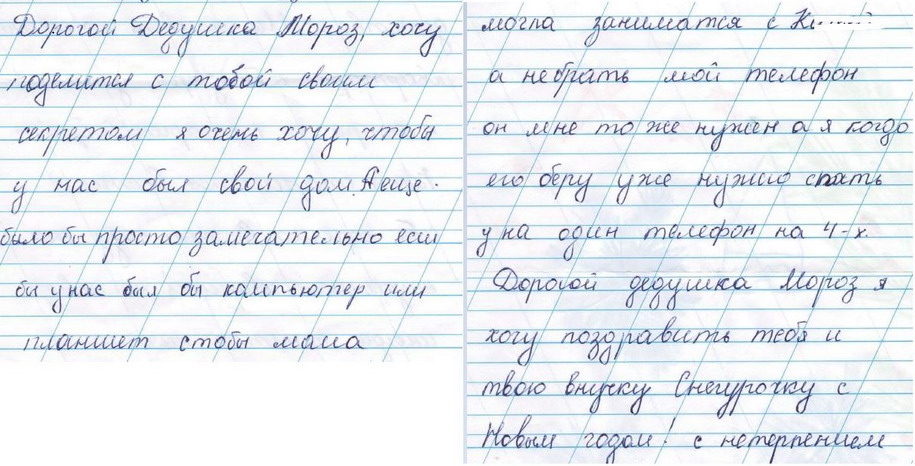 Дорогой Дедушка Мороз, хочу
поделится с тобой своим
секретом я очень хочу, чтобы
у нас был свой дом. А еще
было бы просто замечательно если
бы у нас был бы компьютер или
планшет стобы мама
могла заниматся с
а небрать мой телефон
он мне то же нужен а я когдо
его беру уже нужно спать
у на один телефон на 4-х.
Дорогой дедушка Мороз я
хочу поздравить тебя и
твою внучку Снегурочку с
Новым годом! с нетерпением